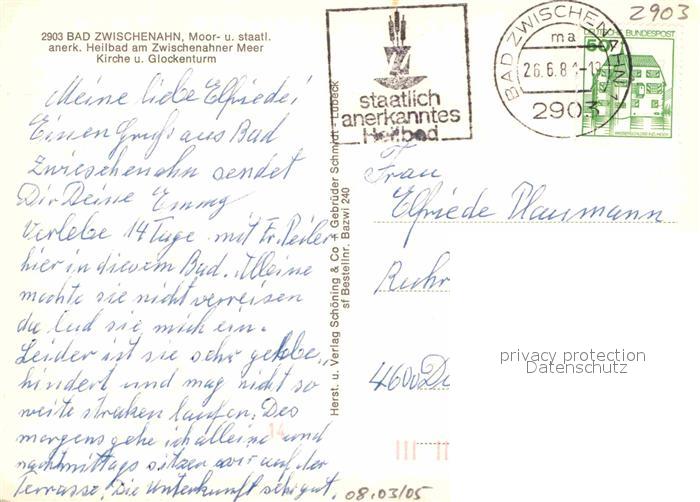 2903 BAD ZWISCHENAHN, Moor- u. staatl.
anerk. Heilbad am Zwischenahner Meer
Kirche u. Glockenturm
Meine liebe Elfriede!
Einen Gruß aus Bad
Zwischenahn sendet
Dir Deine Emmy
Verlebe 14 Tage mit Fr. Peiler
hier in diesem Bad. Alleine
mochte sie nicht verreisen
da lud sie mich ein.
Leider ist sie sehr gehbe..
hindert und mag nicht so
weite strecken laufen. Des
morgens gehe ich alleine und
nachmittags sitzen wir auf der
Terrasse. Die Unterkunft sehr gut.
08.03/05
14
Herst. u. Verlag Schöning & Co + Gebrüder Schmidt · Lübeck
sf Bestellnr. Bazwi 240
staatlich
anerkanntes
Heilbad
BAD ZWISCHENAHN
ma
26.6.8
2903
2903
DEUTSCHE BUNDESPOST
50
Frau
Elfriede Plaumann
Ruhr
4600 Do
privacy protection
Datenschutz